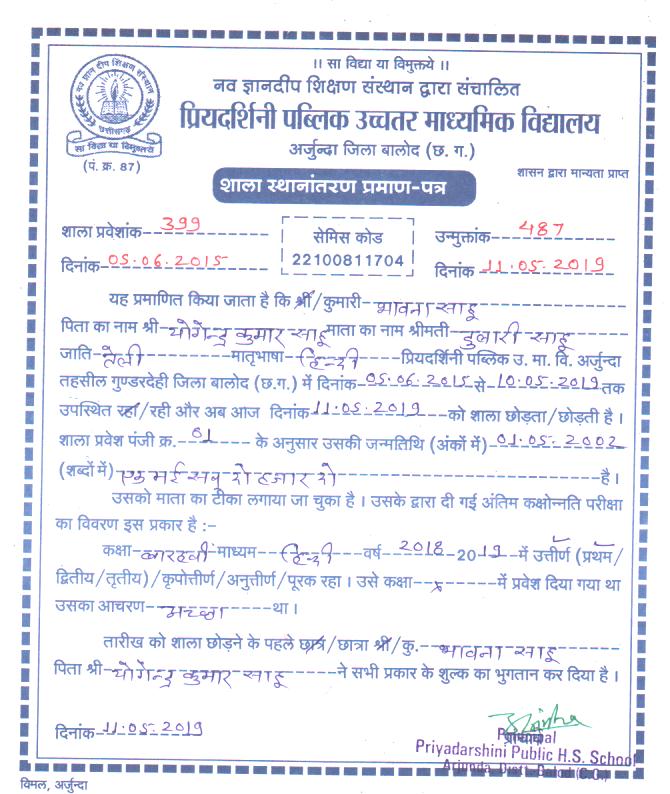 ।। सा विद्या या विमुक्तये ।।
नव ज्ञानदीप शिक्षण संस्थान द्वारा संचालित
प्रियदर्शिनी पब्लिक उच्चतर माध्यमिक विद्यालय
अर्जुन्दा जिला बालोद (छ. ग.)
नव ज्ञान दीप शिक्षण संस्थान
छत्तीसगढ़
सा विद्या या विमुक्तये
(पं. क्र. 87)
शासन द्वारा मान्यता प्राप्त
शाला स्थानांतरण प्रमाण-पत्र
शाला प्रवेशांक 399
सेमिस कोड
उन्मुक्तांक 487
दिनांक 05.06.2015
22100811704
दिनांक 11.05.2019
यह प्रमाणित किया जाता है कि श्री/कुमारी भावना साहू
पिता का नाम श्री योगेन्द्र कुमार साहू माता का नाम श्रीमती दुलारी साहू
जाति तेली मातृभाषा हिन्दी प्रियदर्शिनी पब्लिक उ. मा. वि. अर्जुन्दा
तहसील गुण्डरदेही जिला बालोद (छ.ग.) में दिनांक 05.06.2015 से 10.05.2019 तक
उपस्थित रहा/रही और अब आज दिनांक 11.05.2019 को शाला छोड़ता/छोड़ती है ।
शाला प्रवेश पंजी क्र. 01 के अनुसार उसकी जन्मतिथि (अंकों में) 01.05.2002
(शब्दों में) एक मई सन् दो हजार दो है ।
उसको माता का टीका लगाया जा चुका है । उसके द्वारा दी गई अंतिम कक्षोन्नति परीक्षा
का विवरण इस प्रकार है :-
कक्षा बारहवीं माध्यम हिन्दी वर्ष 2018 2019 में उत्तीर्ण (प्रथम/
द्वितीय/तृतीय)/कृपोत्तीर्ण/अनुत्तीर्ण/पूरक रहा । उसे कक्षा x में प्रवेश दिया गया था
उसका आचरण अच्छा था ।
तारीख को शाला छोड़ने के पहले छात्र/छात्रा श्री/कु. भावना साहू
पिता श्री योगेन्द्र कुमार साहू ने सभी प्रकार के शुल्क का भुगतान कर दिया है ।
दिनांक 11.05.2019
Principal
Priyadarshini Public H.S. School
Arjunda, Distt.-Balod (C.G.)
विमल, अर्जुन्दा